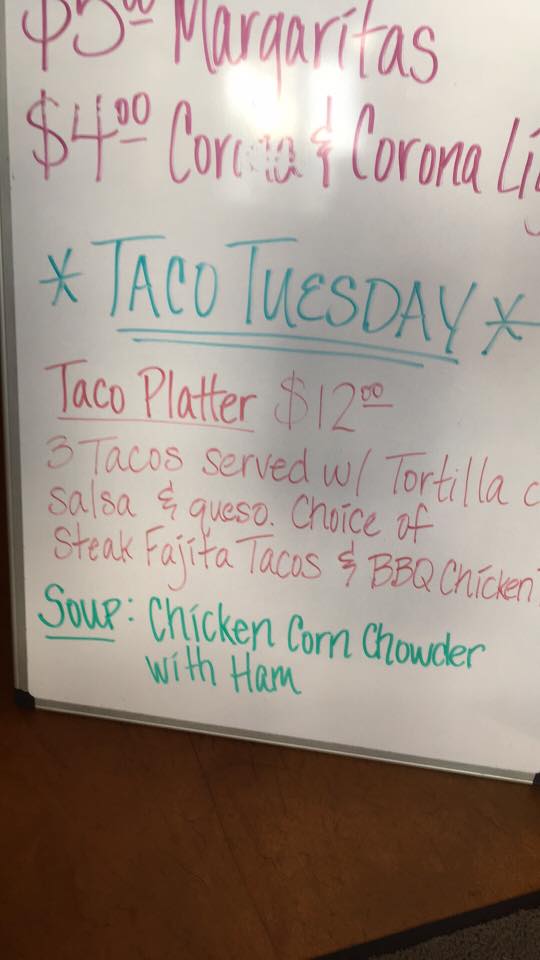 $5⁰⁰ Margaritas
$4⁰⁰ Corona & Corona
* TACO TUESDAY *
Taco Platter $12⁰⁰
3 Tacos served w/ Tortilla
salsa & queso. Choice of
Steak Fajita Tacos & BBQ Chicken
Soup: Chicken Corn Chowder
with Ham